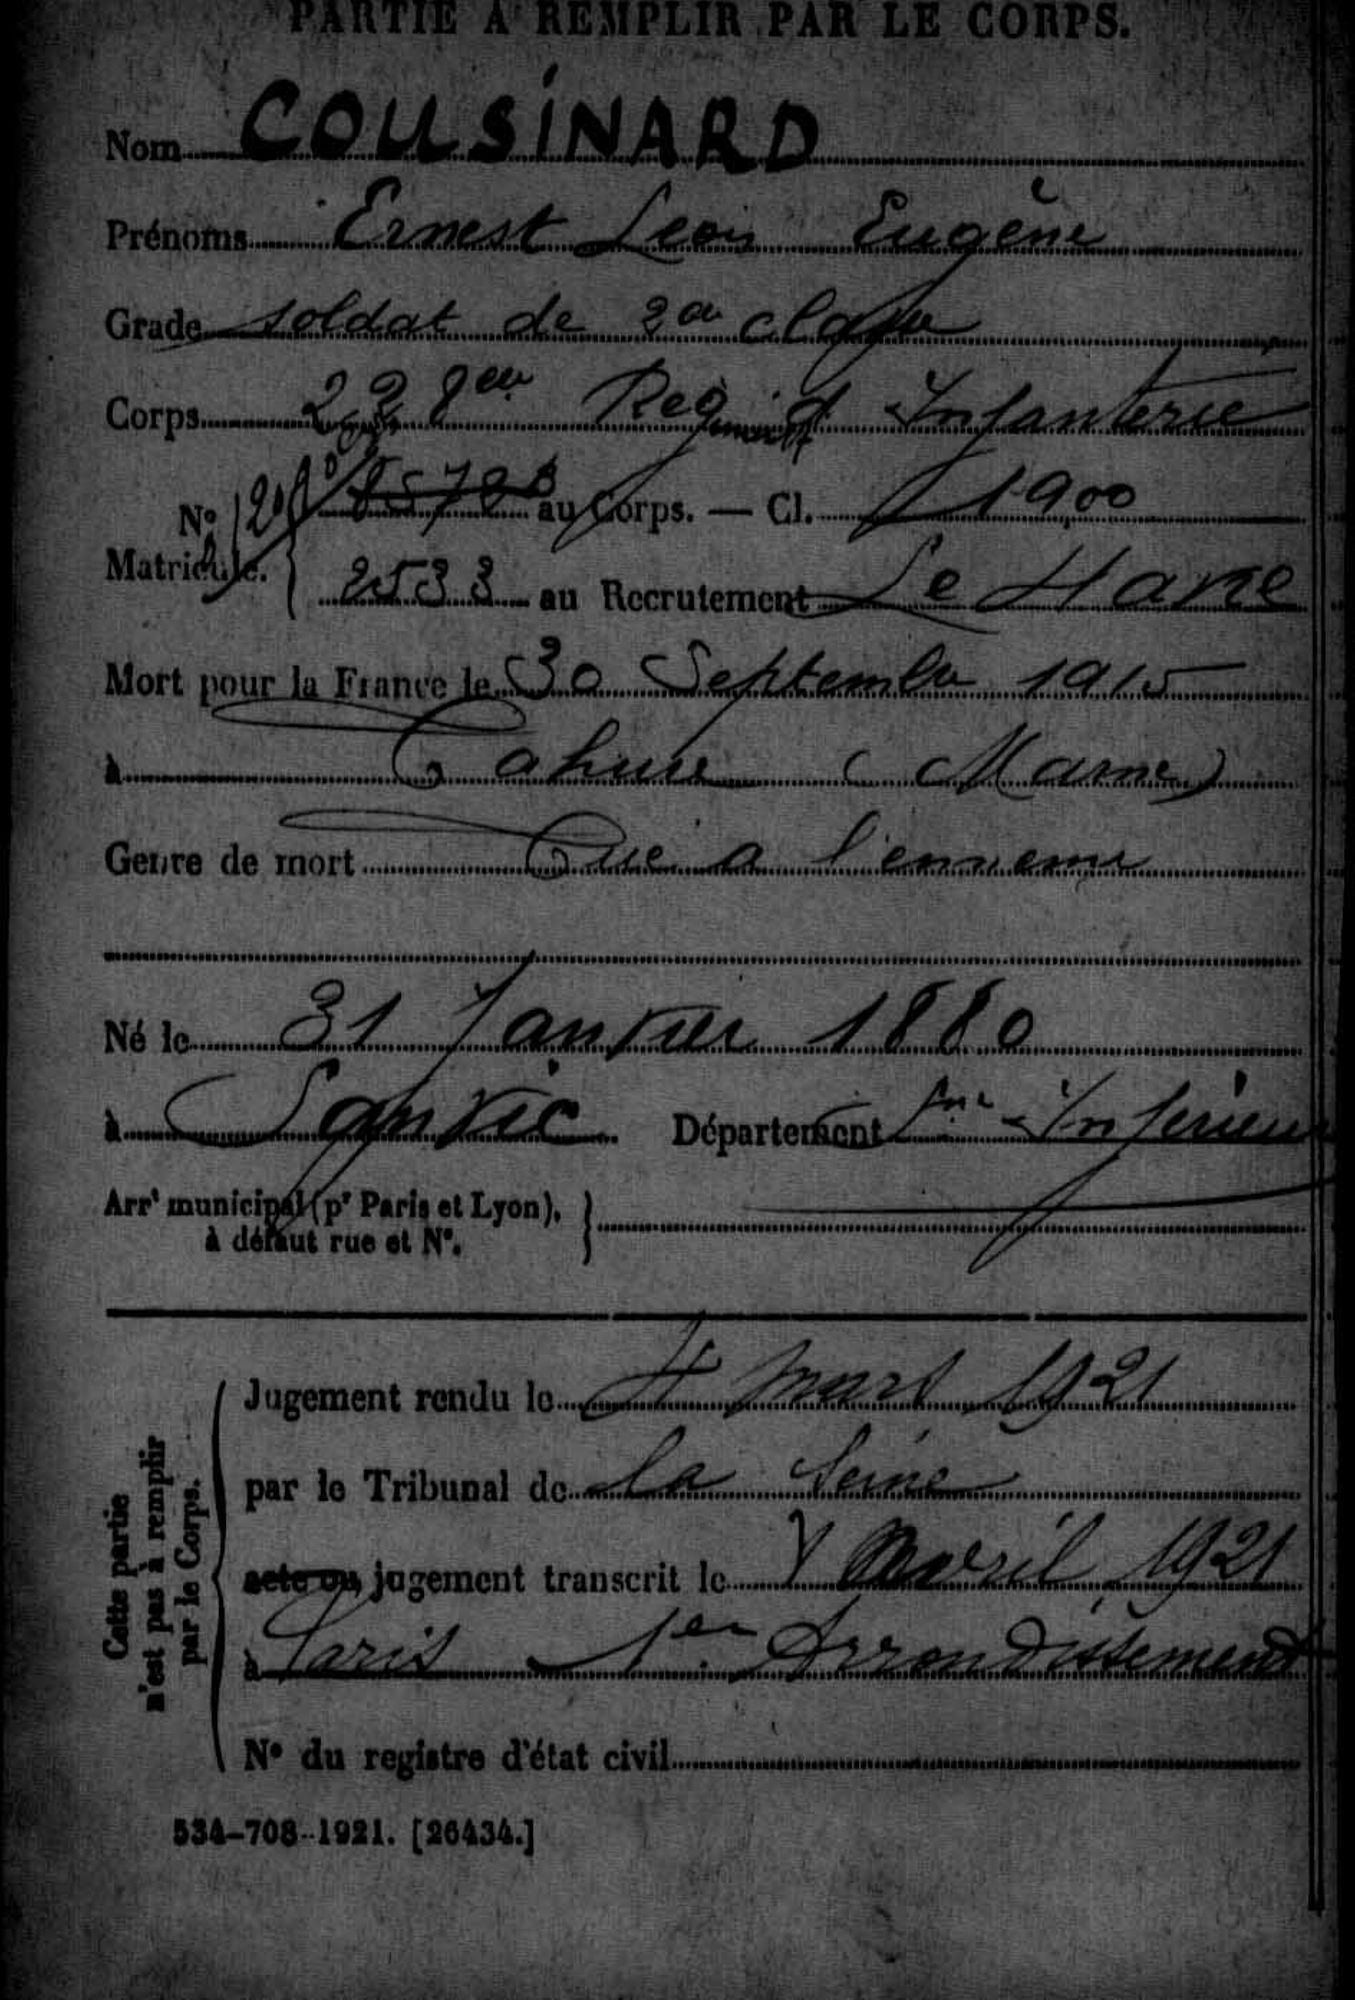 PARTIE À REMPLIR PAR LE CORPS.
Nom COUSINARD
Prénoms Ernest Leon Eugène
Grade soldat de 2me classe
Corps 228eme Regiment d'Infanterie
No Matricule. au Corps. — Cl. 1900
2533 au Recrutement Le Havre
Mort pour la France le 30 Septembre 1915
à Tahure (Marne)
Genre de mort Tué a l'ennemi
Né le 31 Janvier 1880
à Sanvic Département Sne-Inférieure
Arrt municipal (pr Paris et Lyon), à défaut rue et No.
Cette partie n'est pas à remplir par le Corps.
Jugement rendu le 4 mars 1921
par le Tribunal de la Seine
acte ou jugement transcrit le Avril 1921
à Paris 1er Arrondissement
No du registre d'état civil
534-708-1921. [26434.]